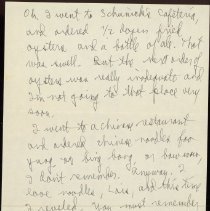 Oh I went to Schumick's Cafeteria,
and ordered 1/2 dozen fried
oysters and a bottle of ale. That
was swell. But the next order of
oysters was really inadequate and
I'm not going to that place very
soon.
I went to a chinese restaurant
and ordered chinese noodles foo
yung or bing bong or how wow,
I don't remember. Anyway, I
love noodles, Lora, and this time
I reveled. You must remember